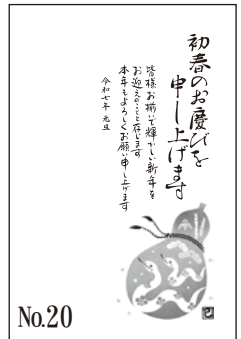 初春のお慶びを
申し上げます
皆様お揃いで輝かしい新年を
お迎えのことと存じます
本年もよろしくお願い申し上げます
令和七年 元旦
巳
No.20